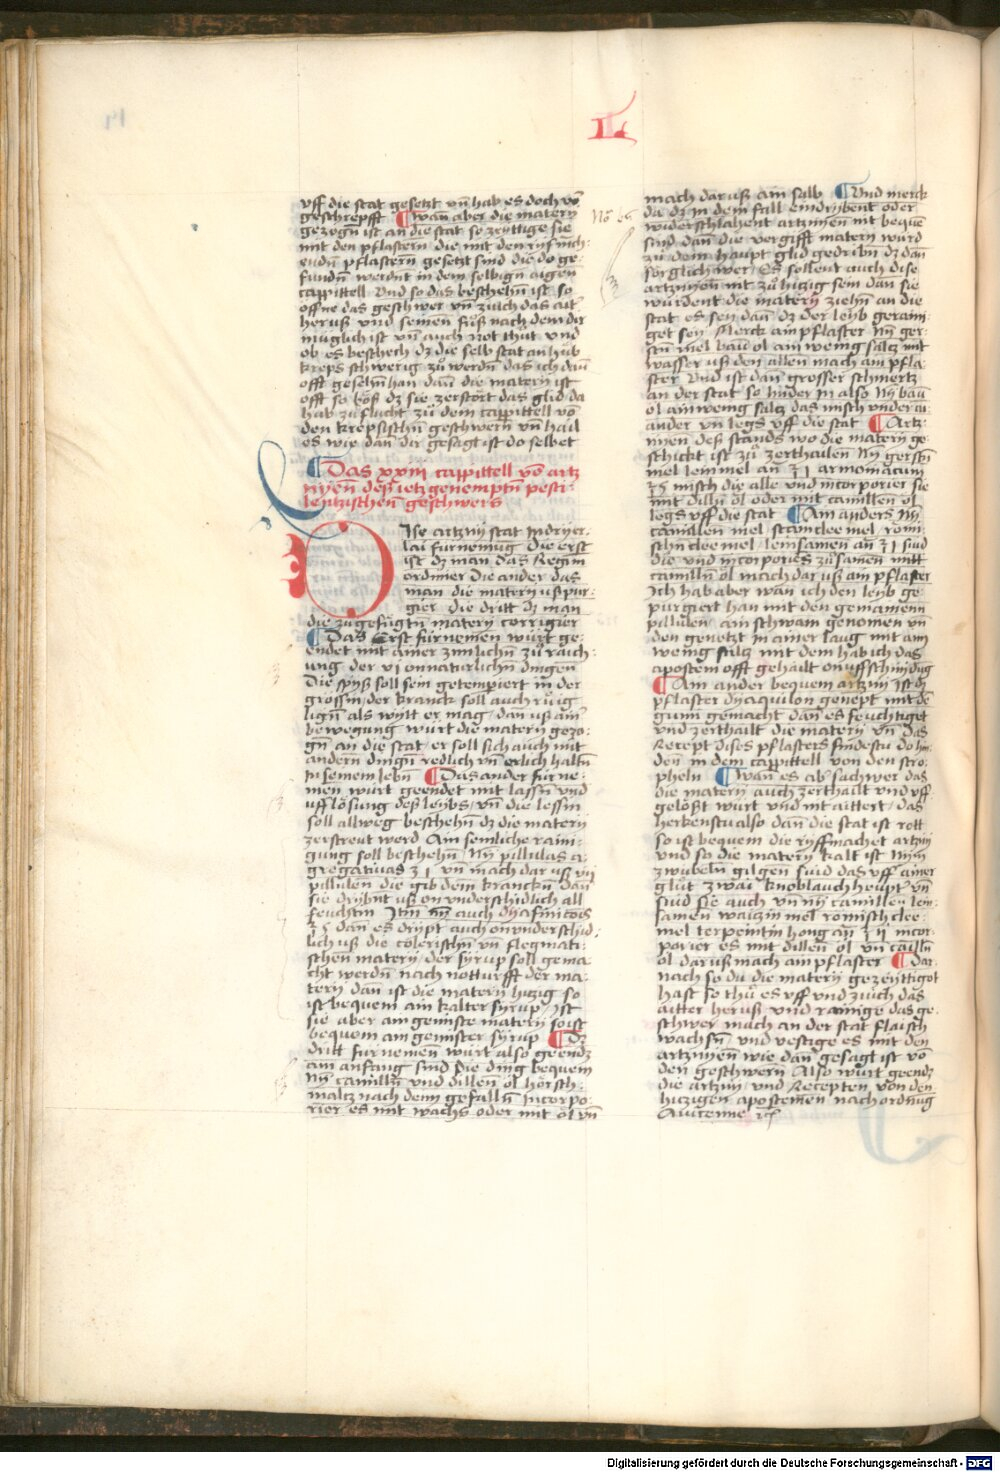 L
vff die stat gesetzt vn̄ hab es doch vō
geschrepfft ¶ wan aber die matery
gezogn̄ ist an die stat so zyttige sie
mit den pflastern die mit den ryf mch
endn̄ pflastern̄ gesetzt sind die do ge
fundn̄ werdnt in dem selbign̄ aigen
cappittell Vnd so das beschehn̄ ist so
offne das geschwer vn̄ zuͤch das aiter
heruß vnd seinen fuͦß nach dem dir
muglich ist vn̄ auch not thuͦt vnd
ob es beschech dz die selb stat an huͤb
kreps schwerig zuͦ werdn̄ das ich dan̄
offt gesehn̄ han dan̄ die matern ist
offt so boͤß dz sie zerstoͤrt das glid da
hab zuflucht zuͦ dem cappittell vō
den krepsischn̄ geschwern̄ vn̄ hail
es wie dan̄ dir gesagt ist do selbet
¶ Das xxiii cappittell vō artz
nyen̄ deß ietz genemptn̄ pesti
lentzischen̄ geschwers
Dise artzny stat in dryer
laii furnemūg Die erst
ist dz man das Regim
ordinier die ander das
man die matern vßpur
gier die dritt dz man
die zugefuͤgtn̄ matery corrigier
¶ Das Erst fuͤrnemen wuͤrt ge
endet mit ainer zimlichn̄ zuͦ raich
ung der vi onnaturlichn̄ dingen
Die spyß soll sein getempiert in der
groͤssin der kranck soll auch ruͤwig
lign̄ als wytt er mag dan̄ uß ain
bewegung wurt die matern gezo
gn̄ an die stat er soll sich auch mit
andern̄ dingn̄ redlich vn̄ erlich haltn̄
in seinem lebn̄ ¶ Das ander fuͤrne
men wuͤrt geendet mit lassn̄ vnd
ufflösung deß leybs vn̄ die lessin
soll allweg beschehn̄ dz die matern
zerstreut werd Am semliche raini
gung soll beschehn̄ Nȳ pillulas a
gregatiuas ʒ i vn̄ mach dar uß vii
pillulen die gib dem kranckn̄ dan̄
sie drybnt uß on vnderschidlich all
feuchtin Itm̄ nȳ auch dyafinicois
ʒ ß dan̄ es drypt auch on vnderschid
lich uß die colerischn̄ vn̄ flegmati
schen matery der syrup soll gema
cht werdn̄ nach notturfft der ma
tery dan̄ ist die matery hitzig so
ist bequem ain kalter syrup / ist
sie aber ain gemiste matery so ist
bequem ain gemister syrup ¶ Dz
dritt furnemen wuͤrt also geendz
am anfang sind die ding bequem
Nȳ camilln̄ vnd dillen oͤl hoͤrsch
maltz nach dem gefalln̄ Incorpo
rier es mit wachs oder mit oͤl vn̄
mach daruß ain salb ¶ Vnd merck
da dz in dem fall eindrybent oder
widerschlahent artznyen nit bequē
sind dan̄ die vergifft matern wuͤrd
zuͦ dem haupt glid gedribn̄ dz dan̄
sorglich wer / Es sollent auch dise
artznyen nit zuͦ hitzig sein dan̄ sie
wuͤrdent die matery ziehn̄ an die
stat es sey dan̄ dz der leyb geraini
get sey Merck ain pflaster Nȳ ger
stn̄ mel bau oͤl ain wenig saltz mit
wasser uß den allen mach ain pfla
ster Vnd ist dan̄ grosser schmertz
an der stat so linder in also Nȳ bau
oͤl ain wenig saltz das misch vnder ai
ander vn̄ legs vff die stat ¶ Artz
nyen deß stands wo die matery ge
schickt ist zuͦ zerthailen̄ Nȳ gerstn̄
mel leinmel an̄ ʒ i armoniacum
ʒ ß misch die alle vnd incorporier sie
mit dilln̄ oͤl oder mit camillen oͤl
legs vff die stat ¶ Am anders Nȳ
camillen mel steinclee mel / roͤmi
schn̄ clee mel / leinsamen an̄ ʒ i siud
die vnd incorporiers zuͦsamen mitt
camilln̄ oͤl mach dar uß ain pflaster
Ich hab aber wan ich den leyb ge
purgiert han mit den gemainenn
pillulen / ain schwam genomen vn̄
den genetzt in ainer laug mit ain
wenig saltz mit dem hab ich das
apostem offt gehailt on uffschnidūg
¶ Am ander bequem artzny ist dz
pflaster dyaquilon genept mit dē
gumi gemacht dan̄ es feuchtiget
vnd zerthailt die matery vn̄ das
Recept dises pflasters findestu do hin
den in dem cappittell von den stro
pheln ¶ Wan es ab̄ sach wer das
die matery auch zerthailt vnd vff
geloͤßt wuͤrt vnd nit aittert / das
herkenstu also dan̄ die stat ist rott
so ist bequem die ryffmachet artzny
vnd so die matery kalt ist Nym
zwybeln̄ gilgen siud das vff ainer
gluͦt zwai knoblauch heupt vn̄
siud sie auch vn̄ nȳ camillen lein
samen waitzin mel roͤmisch clee
mel terpeintin hong an̄ ʒ ij incor
porier es mit dillen oͤl vn̄ camilln̄
oͤl daruß mach ain pflaster ¶ Dar
nach so du die matery gezeyttigot
hast so thuͦ es vff vnd zuͤch das
aitter heruß vnd rainige das ge
schwer mach an der stat flaisch
wachsn̄ vnd vestige es mit den
artznyen wie dan̄ gesagt ist vō
den geschwern̄ Also wuͤrt geendz
die artzny vnd Recepten von den
hitzigen apostemen nach ordnūg
Auicenne ꝛc
Digitalisierung gefördert durch die Deutsche Forschungsgemeinschaft - DFG